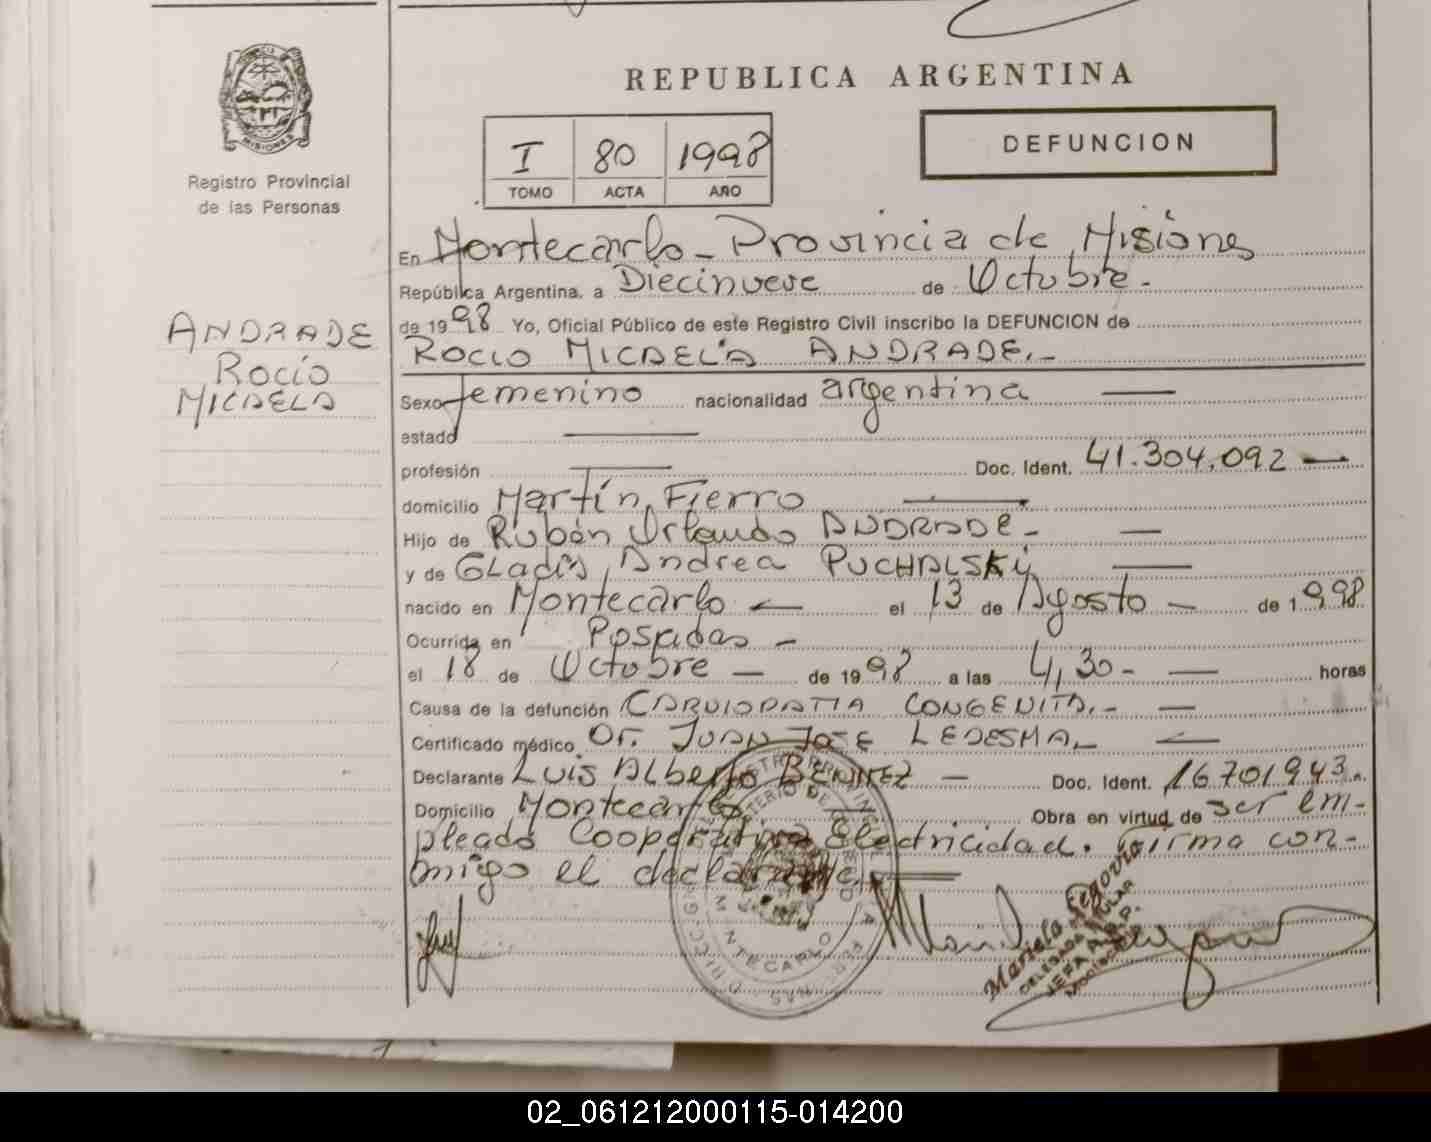 REPUBLICA ARGENTINA
MISIONES
Registro Provincial
de las Personas
I 80 1998
TOMO ACTA AÑO
DEFUNCION
ANDRADE
Rocío
MICAELA
En Montecarlo - Provincia de Misiones
República Argentina, a Diecinueve de Octubre.-
de 1998 Yo, Oficial Público de este Registro Civil inscribo la DEFUNCION de
ROCIO MICAELA ANDRADE.-
Sexo femenino nacionalidad argentina —
estado —
profesión — Doc. Ident. 41.304.092 —
domicilio Martín Fierro —
Hijo de Rubén Orlando ANDRADE - —
y de GLadis Andrea PUCHALSKI —
nacido en Montecarlo — el 13 de Agosto — de 1998
Ocurrida en Posadas -
el 18 de Octubre — de 1998 a las 4,30- — horas
Causa de la defunción CARDIOPATIA CONGENITA.- —
Certificado médico Dr. JUAN JOSE LEDESMA.- —
Declarante Luis ALberto BENITEZ — Doc. Ident. 16.701.943.-
Domicilio Montecarlo Obra en virtud de ser em-
pleado Cooperativa Electricidad. Firma con-
migo el declarante. —
MONTECARLO
Mariela Segovia
DELEGADA TITULAR
02_061212000115-014200